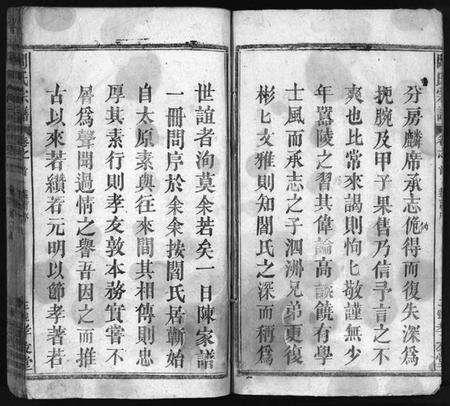 分房麟席承志俛得而復失深為
扼腕及甲子果售乃信予言之不
爽也比常來謁則恂匕敬謹無少
年囂陵之習其偉論高談饒有學
士風而承志之子泗洲兄弟更復
彬匕文雅則知閻氏之深而稱為
世誼者洵莫余若矣一日陳家譜
一冊問序於余余按閻氏居蘄始
自太原素與往來間其相傳則忠
厚其素行則孝友敦本務實嘗不
屑為聲聞過情之譽吾因之而推
古以來若纘若元明以節孝著若